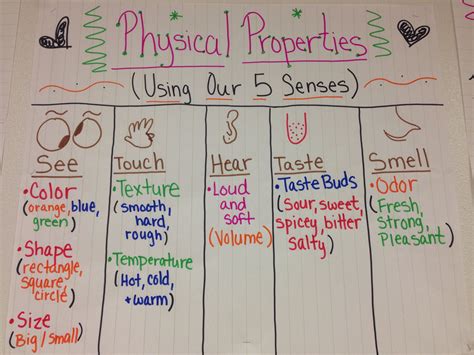 Physical Properties
(Using Our 5 Senses)
See
• Color
(orange, blue,
green)
• Shape
(rectangle,
square,
circle)
• Size
(Big/small)
Touch
• Texture
(smooth,
hard,
rough)
• Temperature
(Hot, cold,
+ warm)
Hear
• Loud
and
soft
(Volume)
Taste
• Taste Buds
(Sour, sweet,
spicey, bitter
Salty)
Smell
• Odor
(Fresh,
Strong,
Pleasant)